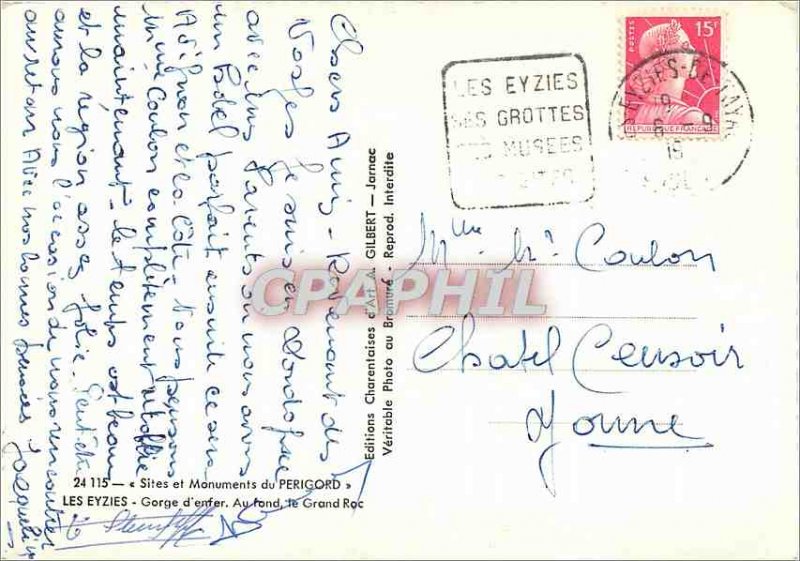 Chers Amis - Revenant des
Vosges je suis en Dordogne
avec mes Parents où nous avons
un hôtel parfait ensuite ce sera
Avignon et la Côte - Nous pensons
Mme Coulon complètement rétablie
maintenant - le temps est beau
et la région assez jolie. Peut être
aurons nous l'occasion de nous rencontrer
au retour Avec nos bonnes pensées Jacqueline
24 115 — « Sites et Monuments du PERIGORD »
LES EYZIES - Gorge d'enfer. Au fond, le Grand Roc
Editions Charentaises d'Art A. GILBERT — Jarnac
Véritable Photo au Bromure - Reprod. Interdite
LES EYZIES
SES GROTTES
MUSEES
POSTES
15F
REPUBLIQUE FRANCAISE
EYZIES-DE-TAYAC
Mme Mr Coulon
Chatel Censoir
Yonne
CPAPHIL